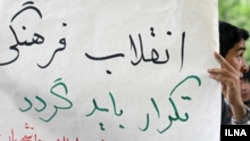 انقلاب فرهنگی
تکرار باید گردد
ILNA